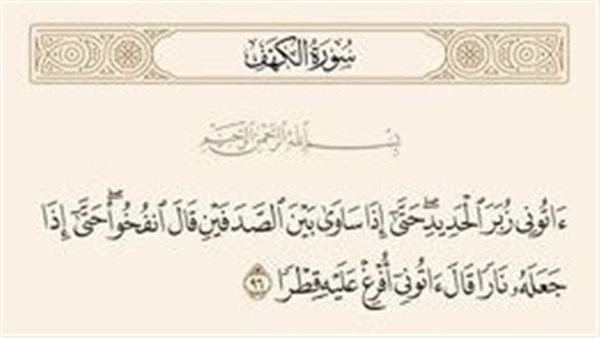 سُورَةُ الكَهْفِ
بِسْمِ ٱللَّهِ ٱلرَّحْمَٰنِ ٱلرَّحِيمِ
ءَاتُونِى زُبَرَ ٱلْحَدِيدِۖ حَتَّىٰٓ إِذَا سَاوَىٰ بَيْنَ ٱلصَّدَفَيْنِ قَالَ ٱنفُخُوا۟ۖ حَتَّىٰٓ إِذَا
جَعَلَهُۥ نَارًا قَالَ ءَاتُونِىٓ أُفْرِغْ عَلَيْهِ قِطْرًا ٩٦